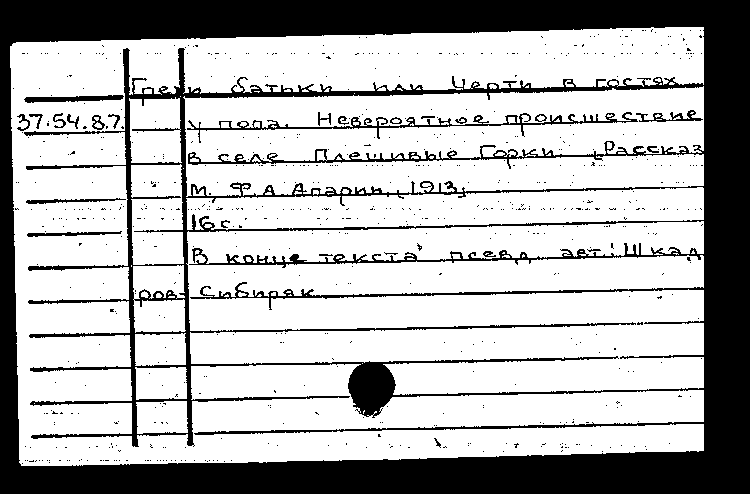 Грехи батьки или Черти в гостях
37.54.8.7. у попа. Невероятное происшествие
в селе Плешивые Горки. [Рассказ
М., Ф.А. Апарин, [1913]
16 с.
В конце текста псевд. авт.: Шкад
ров-Сибиряк